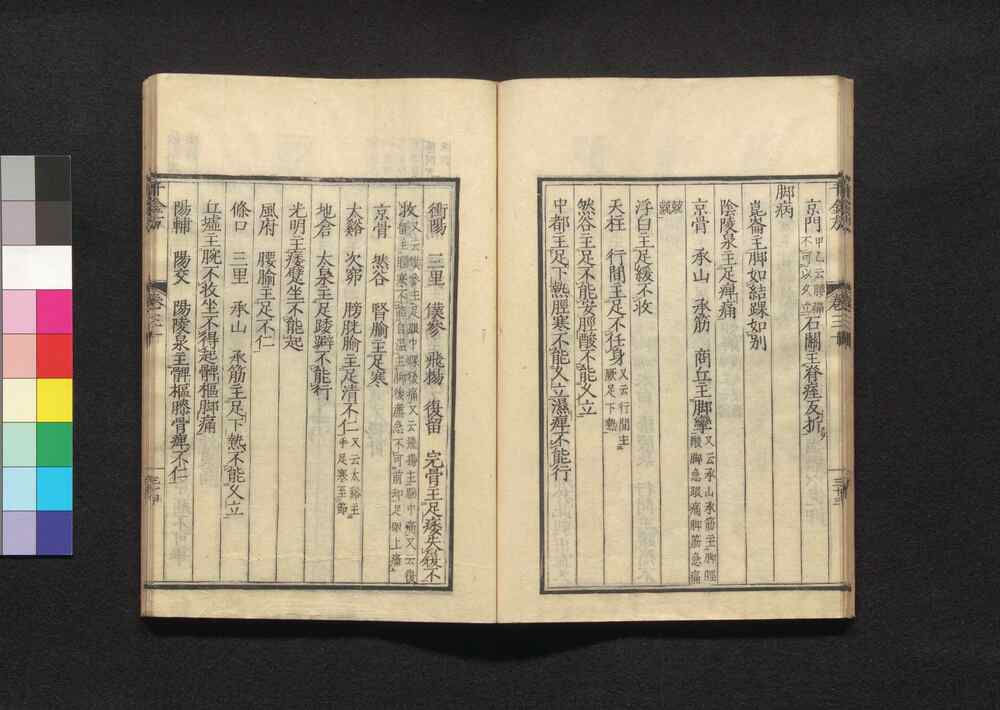 京門甲乙云腰痛不可以久立石關主脊痓反折
脚病
崑崙主脚如結踝如別
陰陵泉主足痺痛
京骨 承山 承筋 商丘主脚攣又云承山承筋主脚脛酸脚急跟痛脚筋急痛
兢兢
浮白主足緩不收
天柱 行間主足不任身又云行間主厥足下熱
然谷主足不能安脛酸不能久立
中都主足下熱脛寒不能久立濕痺不能行
衝陽 三里 僕參 飛揚 復留 完骨主足痿失履不
收又云僕參主足跟中踝後痛又云飛揚主腨中痛又云復
京骨 然谷 腎腧主足寒
太谿 次窌 膀胱腧主足清不仁又云太谿主手足寒至節
地倉 太泉主足躄不能行
光明主痿躄坐不能起
風府 腰腧主足不仁
條口 三里 承山 承筋主足下熱不能久立
丘墟主腕不收坐不得起髀樞脚痛
陽輔 陽交 陽陵泉主髀樞膝骨痺不仁